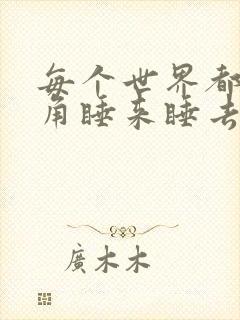 每个世界都
角睡来睡去
廣木木